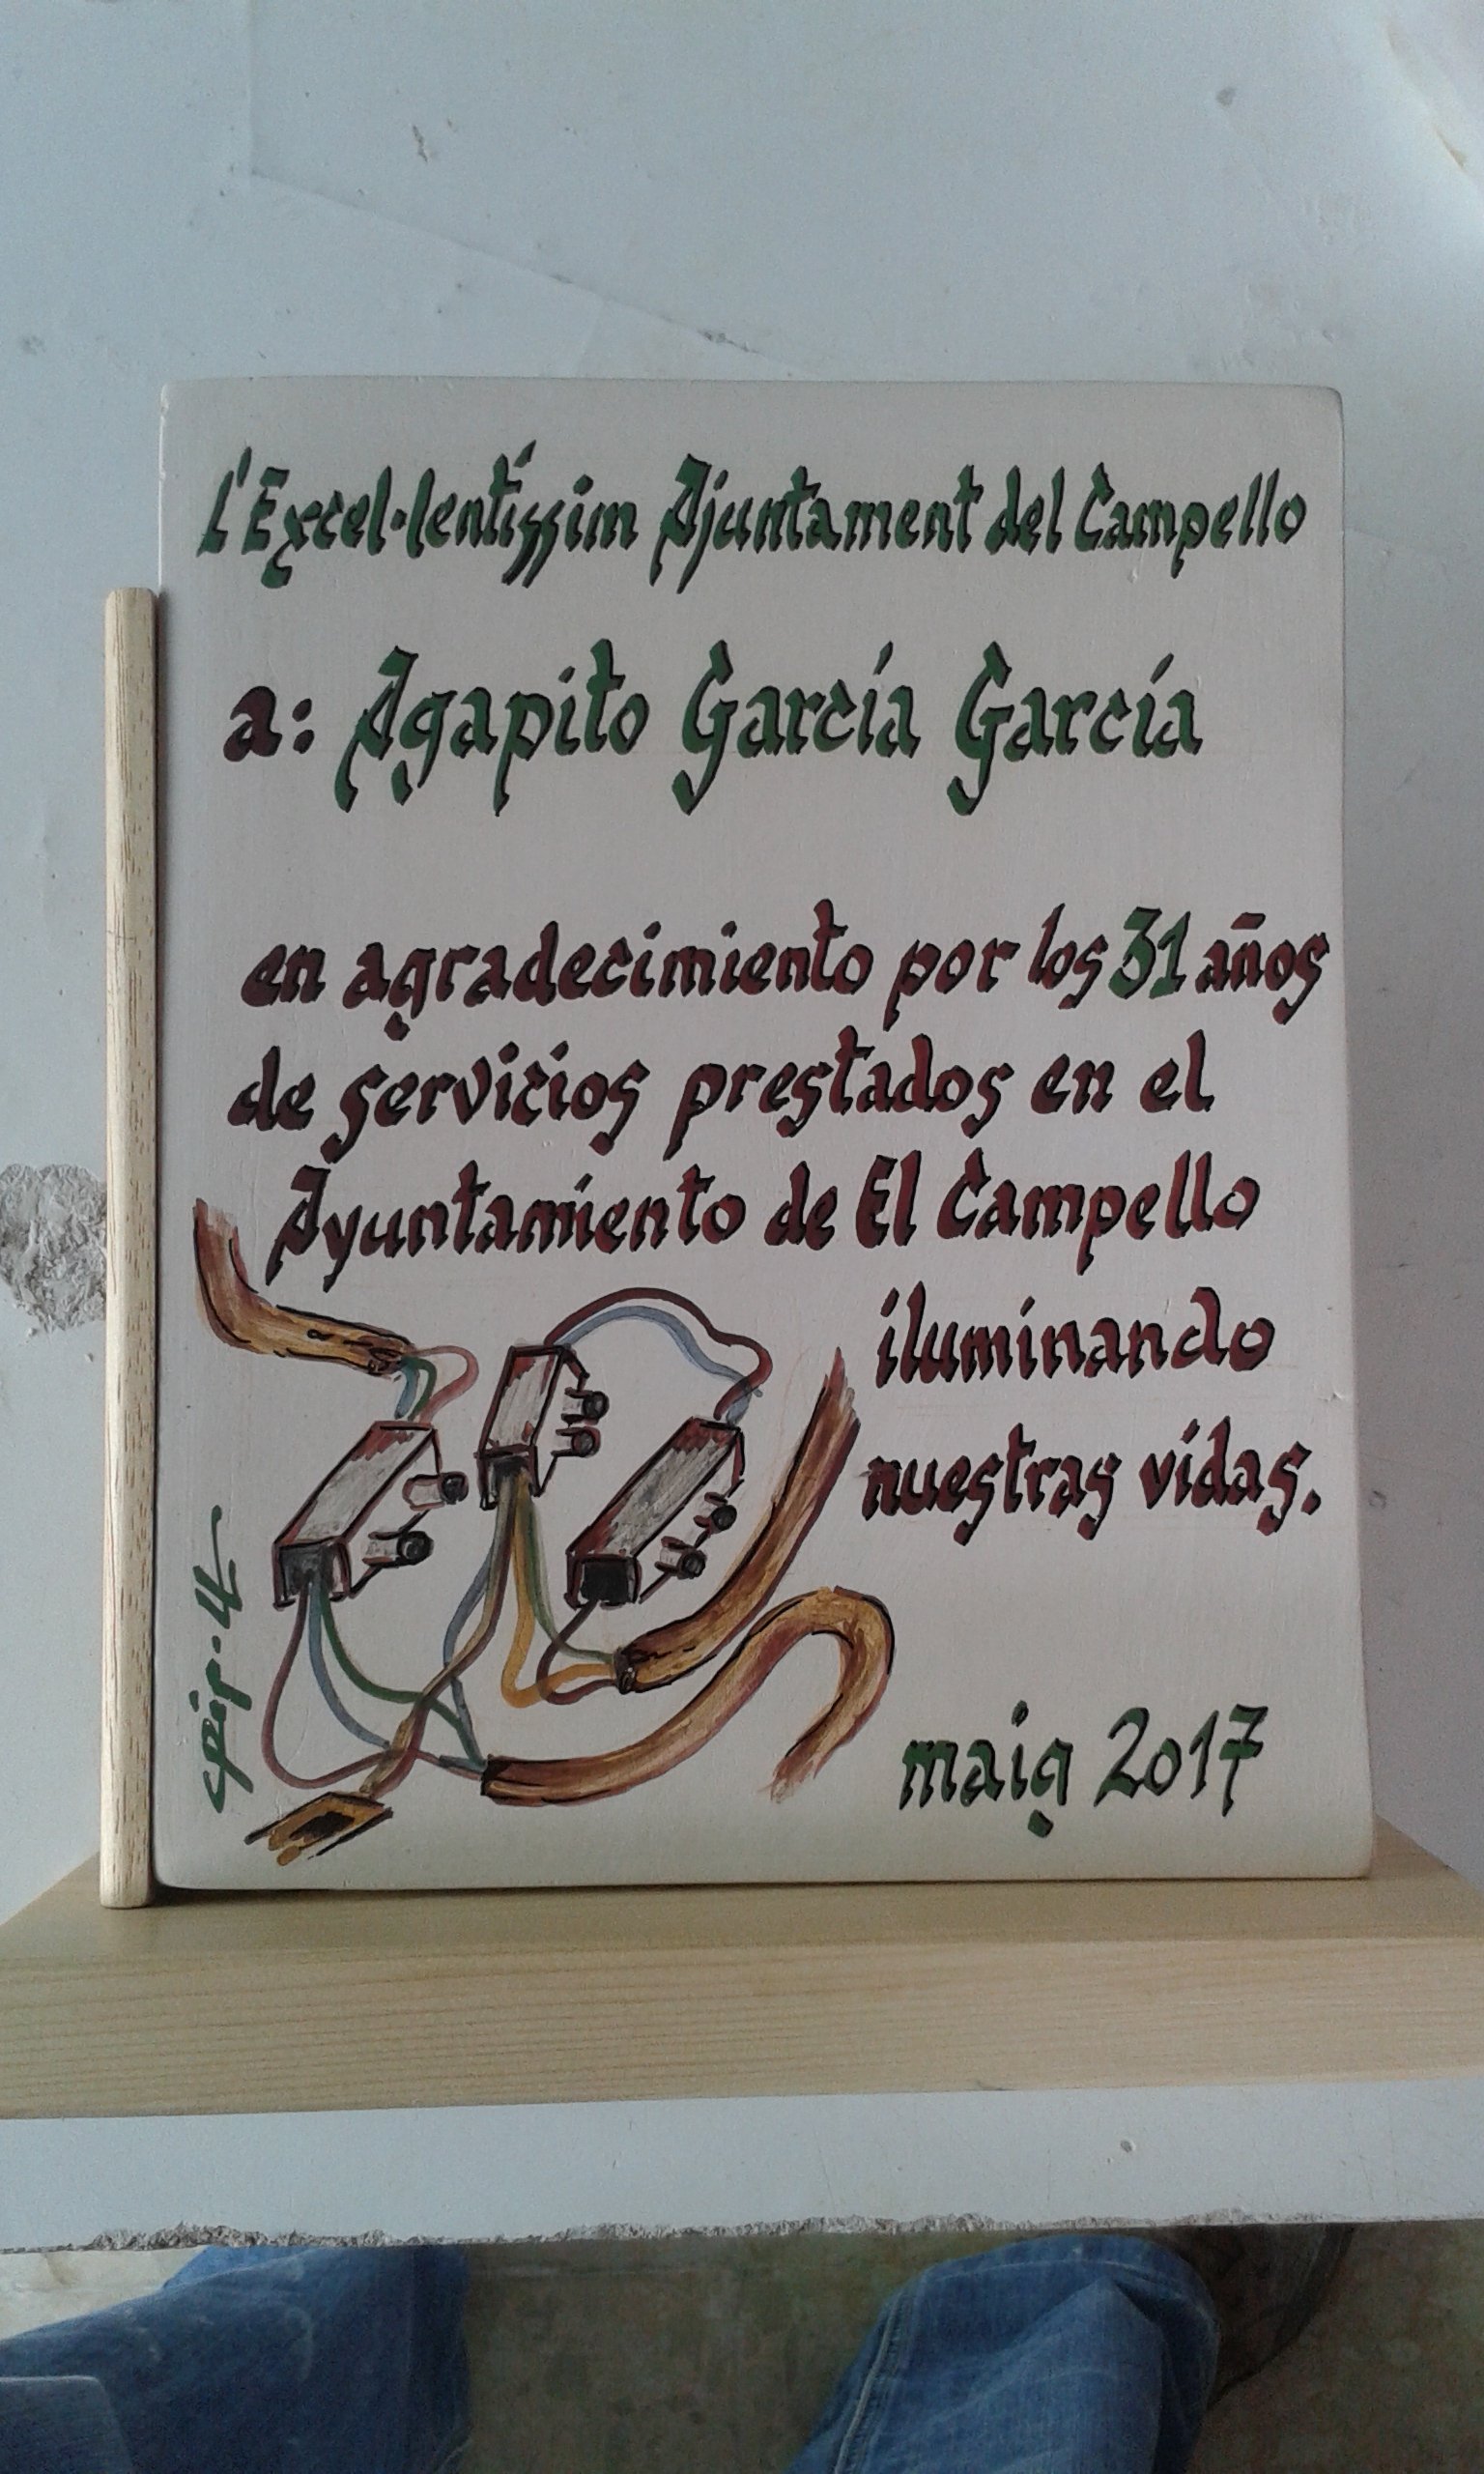 L'Excel·lentíssim Ajuntament del Campello
a: Agapito García García
en agradecimiento por los 31 años
de servicios prestados en el
Ayuntamiento de El Campello
iluminando
nuestras vidas.
maig 2017